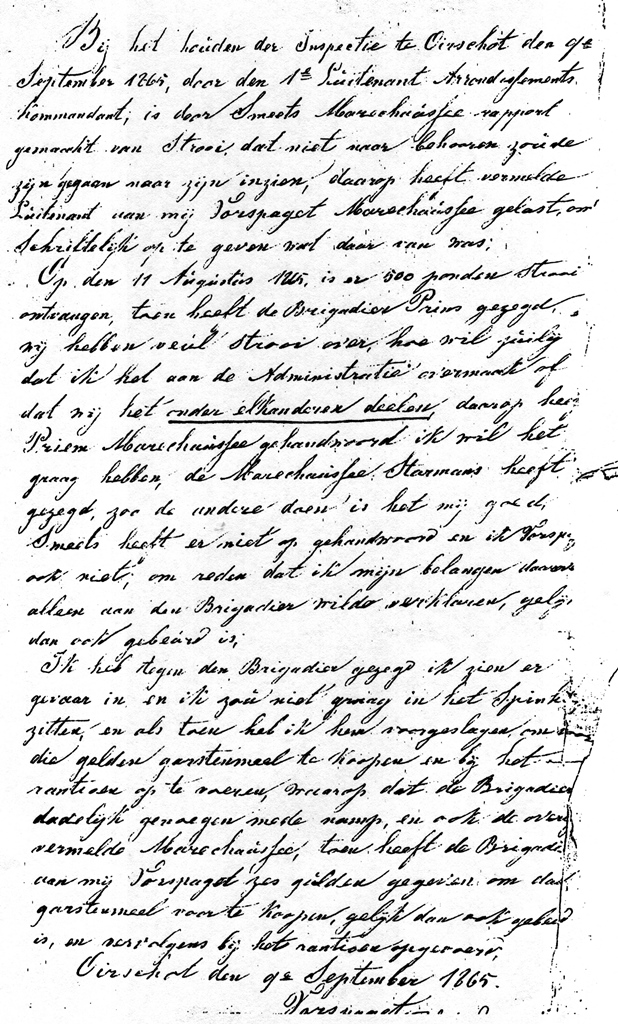 Bij het houden der Inspectie te Oirschot den 9e
September 1865, door den 1e Luitenant Arrondissements
Kommandant, is door Smeets Marechaussee rapport
gemaakt van Strooi, dat niet naar behooren zoude
zijn gegaan naar zijn inzien, daarop heeft vermelde
Luitenant aan mij Vorspaget Marechaussee gelast, om
schriftelijk op te geven wat daar van was;
Op den 11 Augustus 1865, is er 500 ponden Strooi
ontvangen, toen heeft de Brigadier Prins gezegd,
wij hebben veul strooi over, hoe wil julij
dat ik het aan de Administratie overmaak of
dat wij het onder elkanderen deelen, daarop hee
Priem Marechaussee gehandwoord ik wil het
graag hebben, de Marechaussee Starmans heeft
gezegd, zoo de andere doen is het mij goed,
Smeets heeft er niet op gehandwoord en ik Vorsp
ook niet, om reden dat ik mijn belangen
alleen aan den Brigadier wilde verklaren, gelij
dan ook gebeurd is,
Ik heb tegen den Brigadier gezegd ik zien er
gevaar in en ik zou niet graag in het Spink
zitten, en als toen heb ik hem voorgeslagen, om
die gelden garstenmeel te koopen en bij het
rantioen op te voeren, waarop dat de Brigadier
dadelijk genoegen mede namp, en ook de over
vermelde Marechaussee, toen heeft de Brigadi
aan mij Vorspaget zes gulden gegeven om dad
garstenmeel voor te koopen, gelijk dan ook gebeurd
is, en vervolgens bij het rantioen opgevoerd,
Oirschot den 9e September 1865.